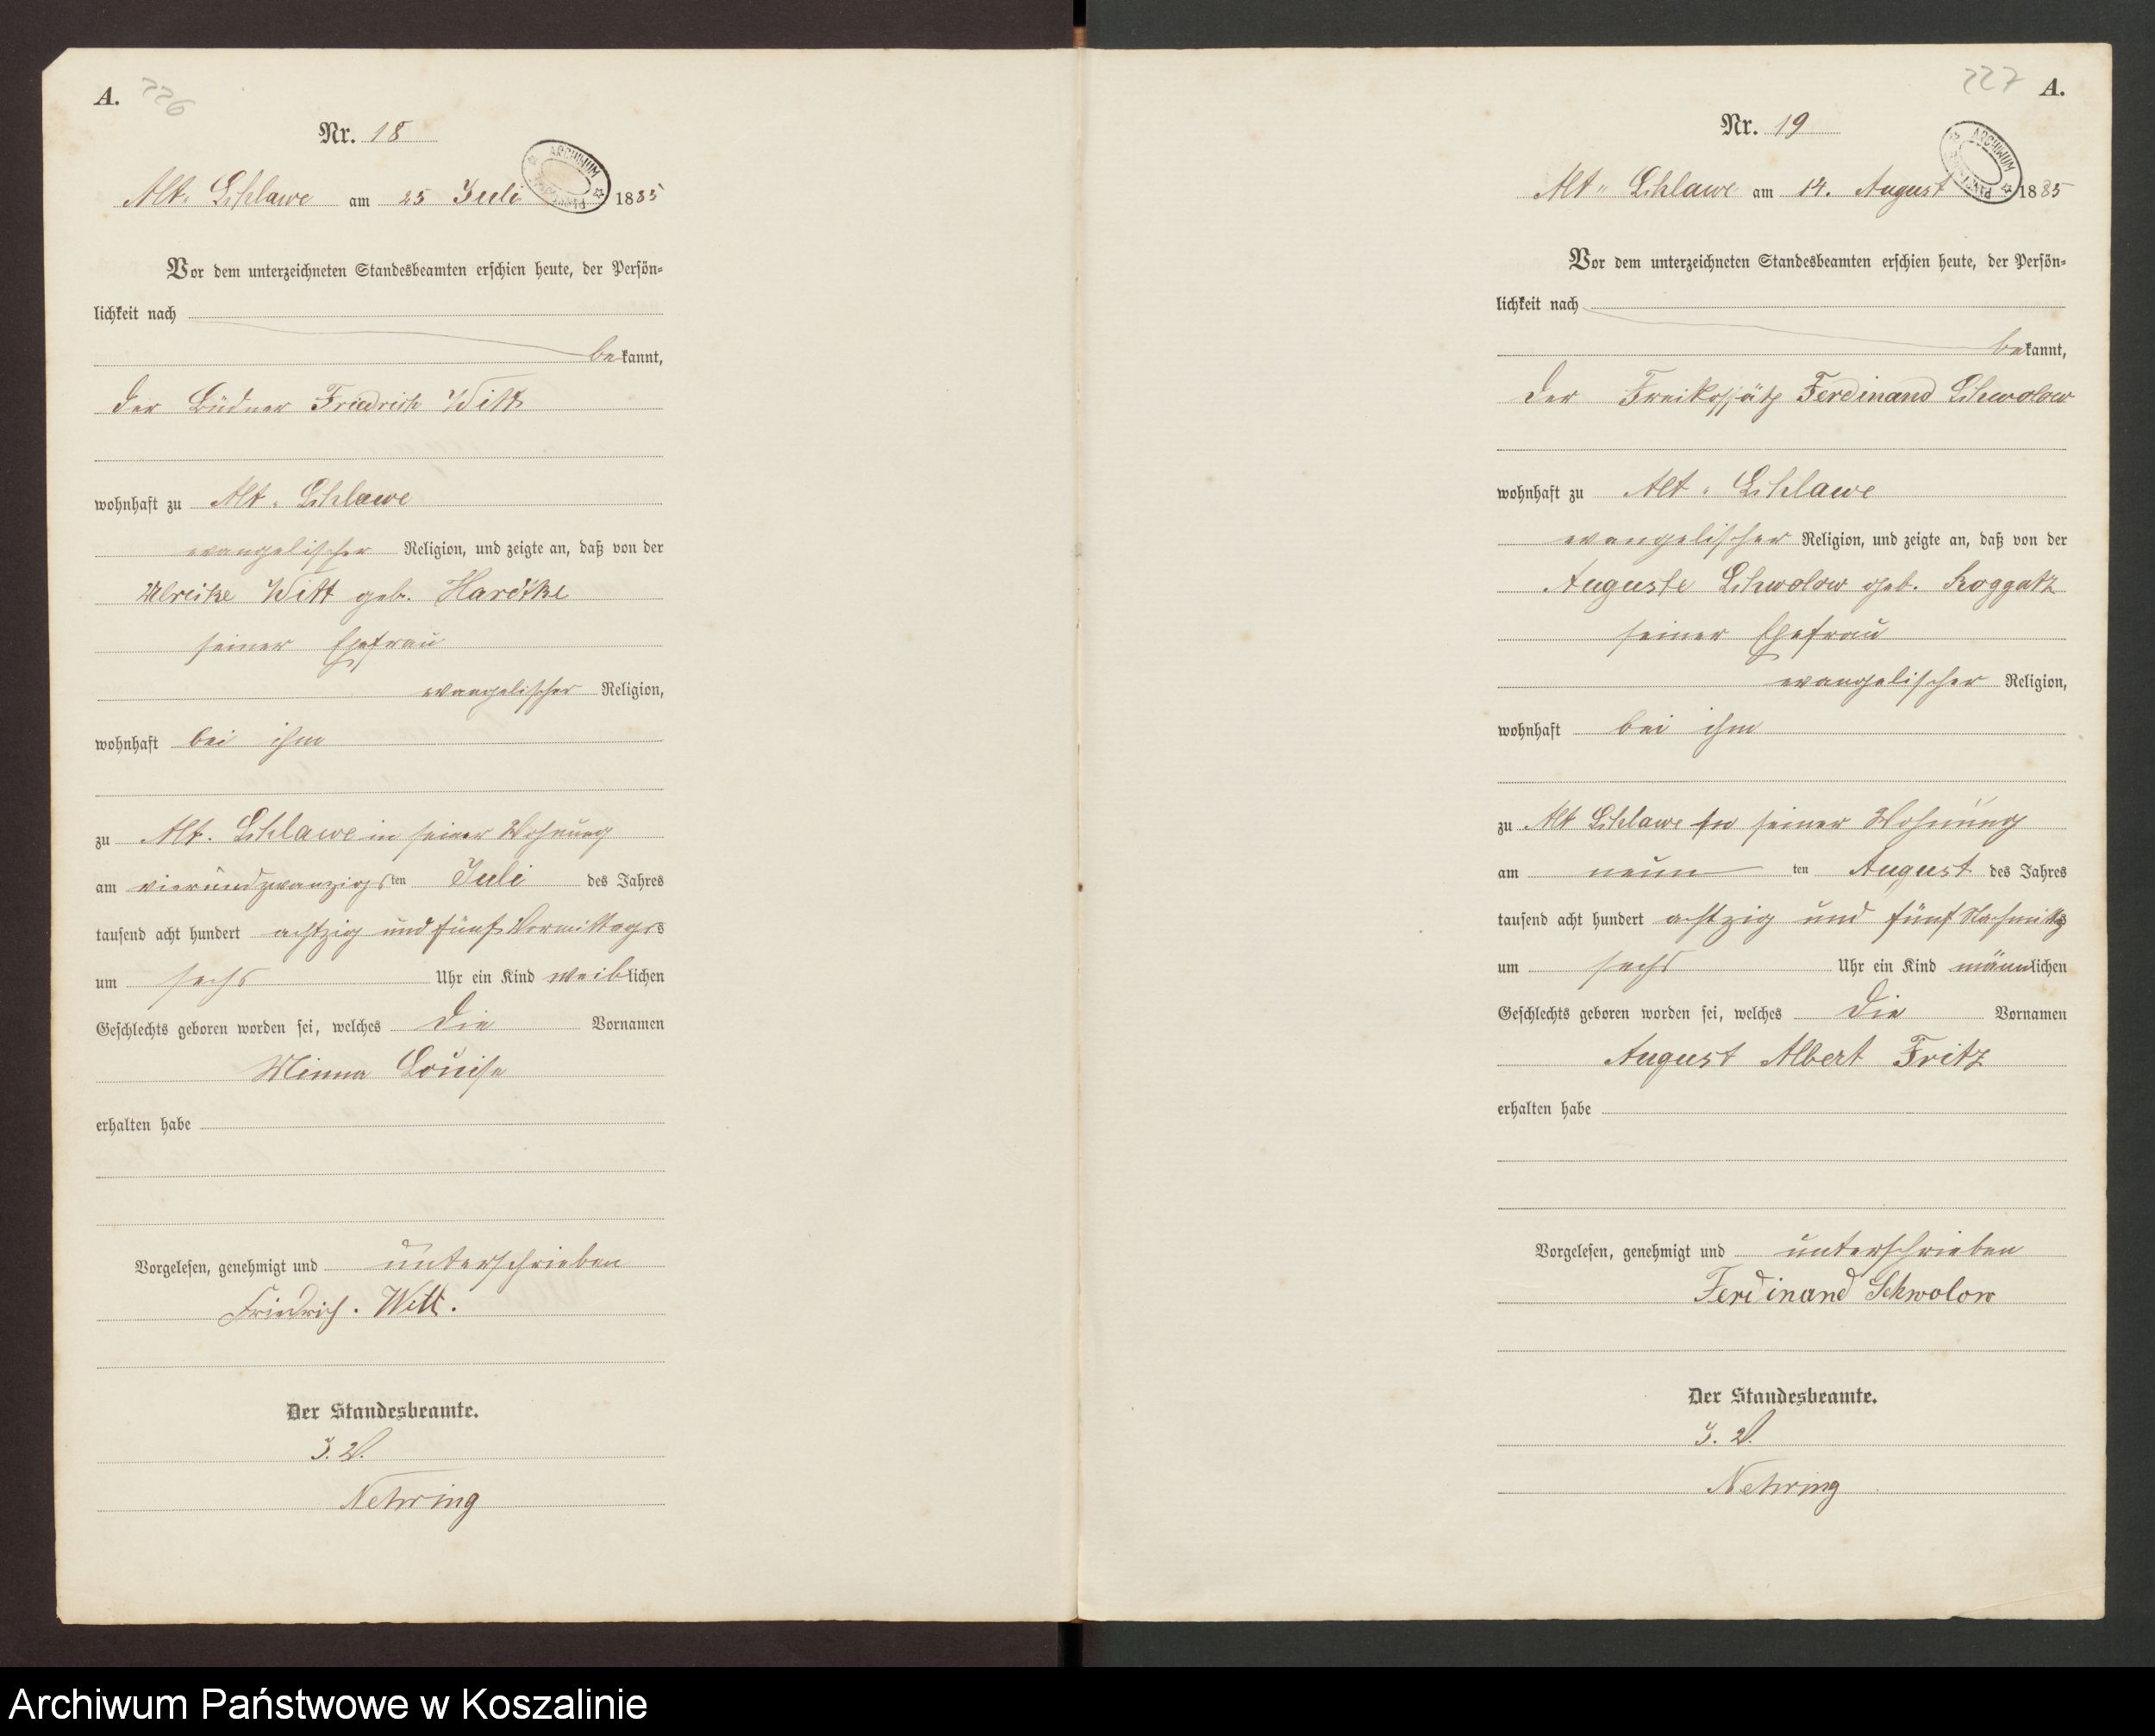 A.
226
Nr. 18
ARCHIWUM
Alt. Schlawe am 25 Juli 1885
Vor dem unterzeichneten Standesbeamten erschien heute, der Persön-
lichkeit nach
bekannt,
der Büdner Friedrich Witt
wohnhaft zu Alt. Schlawe
evangelischer Religion, und zeigte an, daß von der
Ulreike Witt geb. Hardtke
seiner Ehefrau
evangelischer Religion,
wohnhaft bei ihm
zu Alt. Schlawe in seiner Wohnung
am vierundzwanzigsten Juli des Jahres
tausend acht hundert achtzig und fünf Vormittags
um sechs Uhr ein Kind weiblichen
Geschlechts geboren worden sei, welches die Vornamen
Minna Louise
erhalten habe
Vorgelesen, genehmigt und unterschrieben
Friedrich. Witt.
Der Standesbeamte.
J. V.
Nehring
227
A.
Nr. 19
ARCHIWUM
Alt " Schlawe am 14. August 1885
Vor dem unterzeichneten Standesbeamten erschien heute, der Persön-
lichkeit nach
bekannt,
der Freikossäth Ferdinand Schwolow
wohnhaft zu Alt. Schlawe
evangelischer Religion, und zeigte an, daß von der
Auguste Schwolow geb. Roggatz
seiner Ehefrau
evangelischer Religion,
wohnhaft bei ihm
zu Alt Schlawe in seiner Wohnung
am neun ten August des Jahres
tausend acht hundert achtzig und fünf Nachmittgs
um sechs Uhr ein Kind männlichen
Geschlechts geboren worden sei, welches die Vornamen
August Albert Fritz
erhalten habe
Vorgelesen, genehmigt und unterschrieben
Ferdinand Schwolow
Der Standesbeamte.
J. V.
Nehring
Archiwum Państwowe w Koszalinie